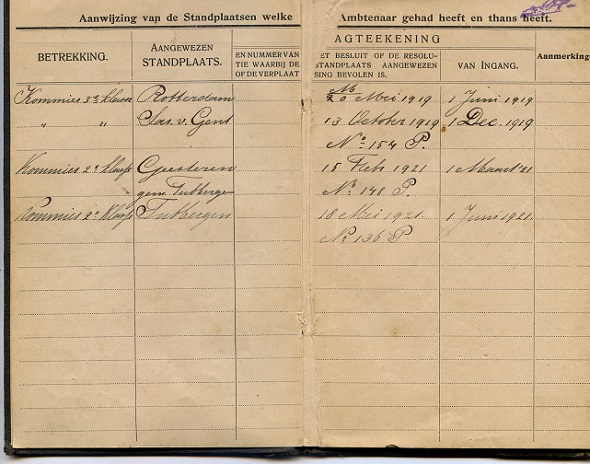 Aanwijzing van de Standplaatsen welke Ambtenaar gehad heeft en thans heeft.
BETREKKING.
AANGEWEZEN
STANDPLAATS.
EN NUMMER VAN
TIE WAARBIJ DE
OF DE VERPLAAT
AGTEEKENING
ET BESLUIT OF DE RESOLU-
STANDPLAATS AANGEWEZEN
SING BEVOLEN IS.
VAN INGANG.
Aanmerking
Kommies 3e klasse Rotterdam 20 Mei 1919 1 Juni 1919
" " Sas v. Gent 13 October 1919 1 Dec. 1919
No 154 P.
Kommies 2e klasse Geesteren 15 Feb 1921 1 Maart 21
gem. Tubbergen No 148 P.
Kommies 2e klasse Tubbergen 18 Mei 1921 1 Juni 1921.
No 136 P